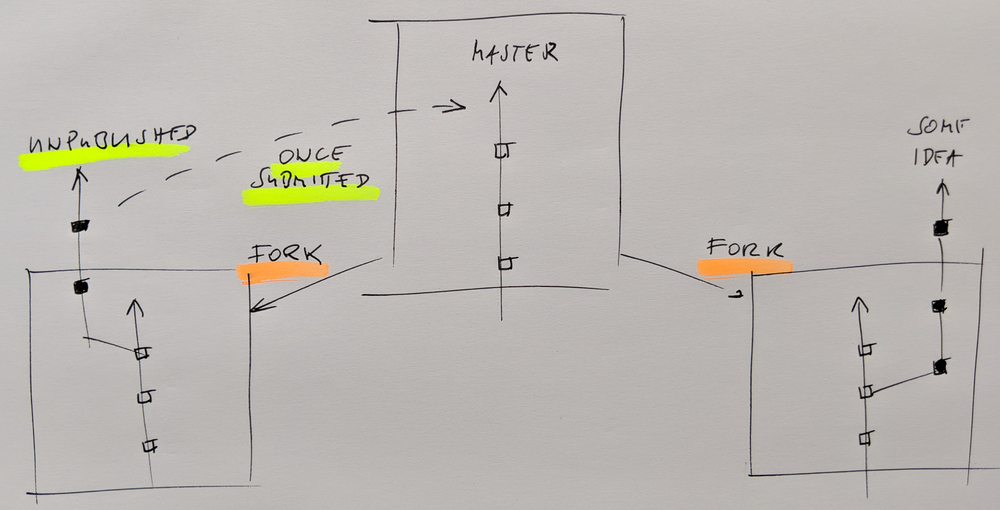 UNPUBLISHED
ONCE
SUBMITED
FORK
MASTER
FORK
SOME
IDEA